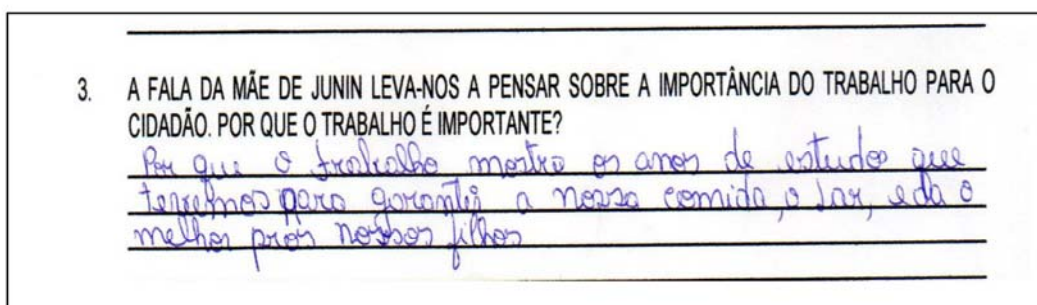 3. A FALA DA MÃE DE JUNIN LEVA-NOS A PENSAR SOBRE A IMPORTÂNCIA DO TRABALHO PARA O
CIDADÃO. POR QUE O TRABALHO É IMPORTANTE?
Por que o trabalho mostra os anos de estudo que
para garantir a nossa comida, o lar, e da o
melhor pros nossos filhos